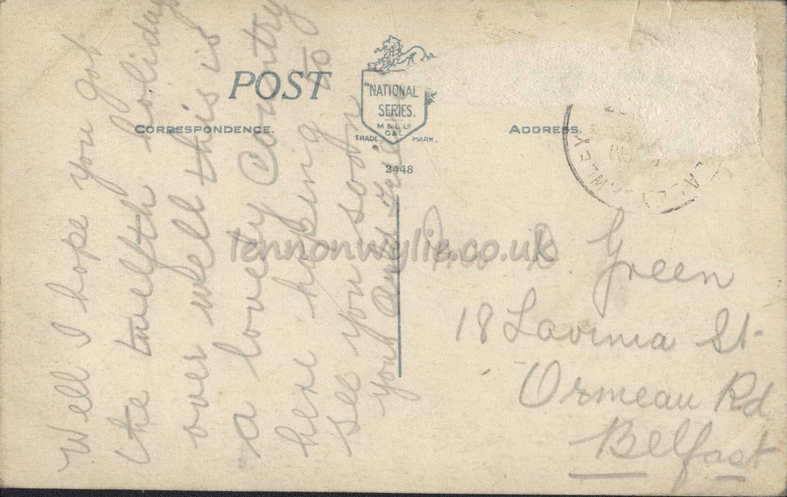 POST
"NATIONAL"
SERIES.
M & L. Lᴰ
G & L.
TRADE MARK.
CORRESPONDENCE.
ADDRESS.
2448
Well I hope you got
the twelfth holidays
over well this is
a lovely Country
here hoping to
see you soon
your
lennonwylie.co.uk
Green
18 Lavinia St.
Ormeau Rd
Belfast